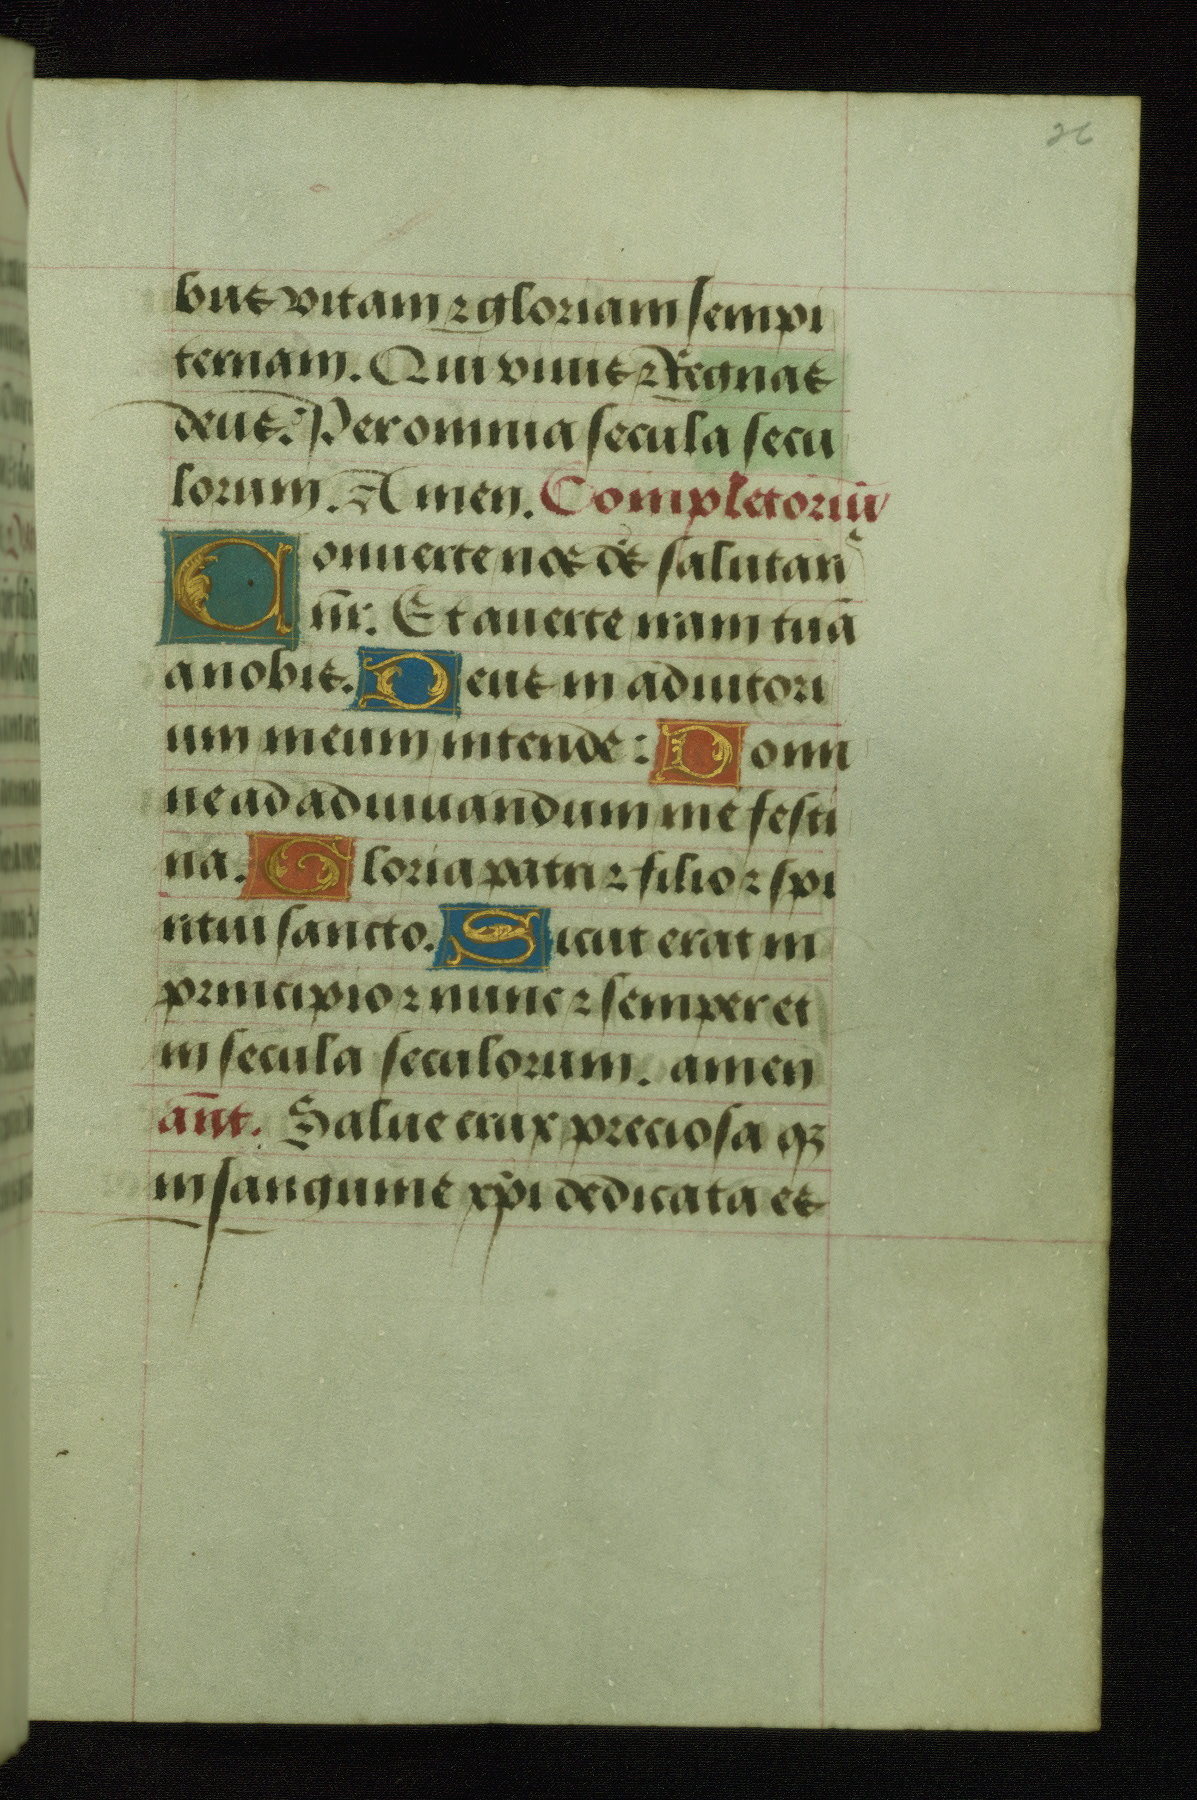 26
bus vitam ⁊ gloriam sempi
ternam. Qui viuis ⁊ Regnas
deus. Per omnia secula secu
lorum. Amen. Completoriū
Conuerte nos ds̄ salutaris
nr̄. Et auerte iram tuā
a nobis. Deus in adiutori
um meum intende: Domi
ne ad adiuuandum me festi
na. Gloria patri ⁊ filio ⁊ spi
ritui sancto. Sicut erat in
principio ⁊ nunc ⁊ semper et
in secula seculorum. amen
ant̄. Salue crux preciosa q̄
in sanguine xp̄i dedicata es